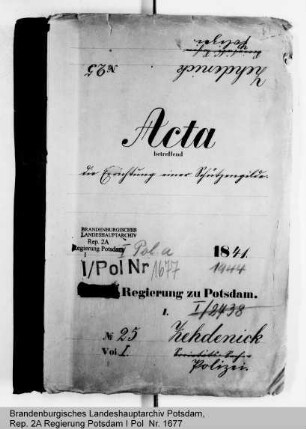 Zehdenick
Polizei
№ 25
Acta
betreffend
die Errichtung einer Schützengilde.
BRANDENBURGISCHES
LANDESHAUPTARCHIV
Rep. 2A
Regierung Potsdam
I Pol a
1841
I/Pol Nr 1677
1944
Regierung zu Potsdam.
I. I/2438
№ 25 Zehdenick
Vol I.
Polizei.
Brandenburgisches Landeshauptarchiv Potsdam,
Rep. 2A Regierung Potsdam I Pol Nr. 1677